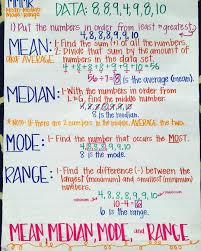 MMMR
Mean·Median
Mode·Range
DATA: 8,8,9,4,9,8,10
1) Put the numbers in order from least → greatest.
4,8,8,8,9,9,10
MEAN:
aka AVERAGE
1- Find the sum (+) of all the numbers.
2- Divide that sum by the amount of
numbers in the data set.
4+8+8+8+9+9+10=56
56÷7=8
8 is the average (mean).
MEDIAN:
1- With the numbers in order from
L→G, find the middle number.
4,8,8,8,9,9,10
8 is the median.
*Note: If there are 2 numbers in the middle, AVERAGE the two.
MODE:
1- Find the number that occurs the MOST.
4,8,8,8,9,9,10
8 is the mode.
RANGE:
1- Find the difference (-) between the
largest (maximum) and smallest (minimum)
numbers.
4,8,8,8,9,9,10
10-4=6
6 is the range.
MEAN MEDIAN, MODE, and RANGE